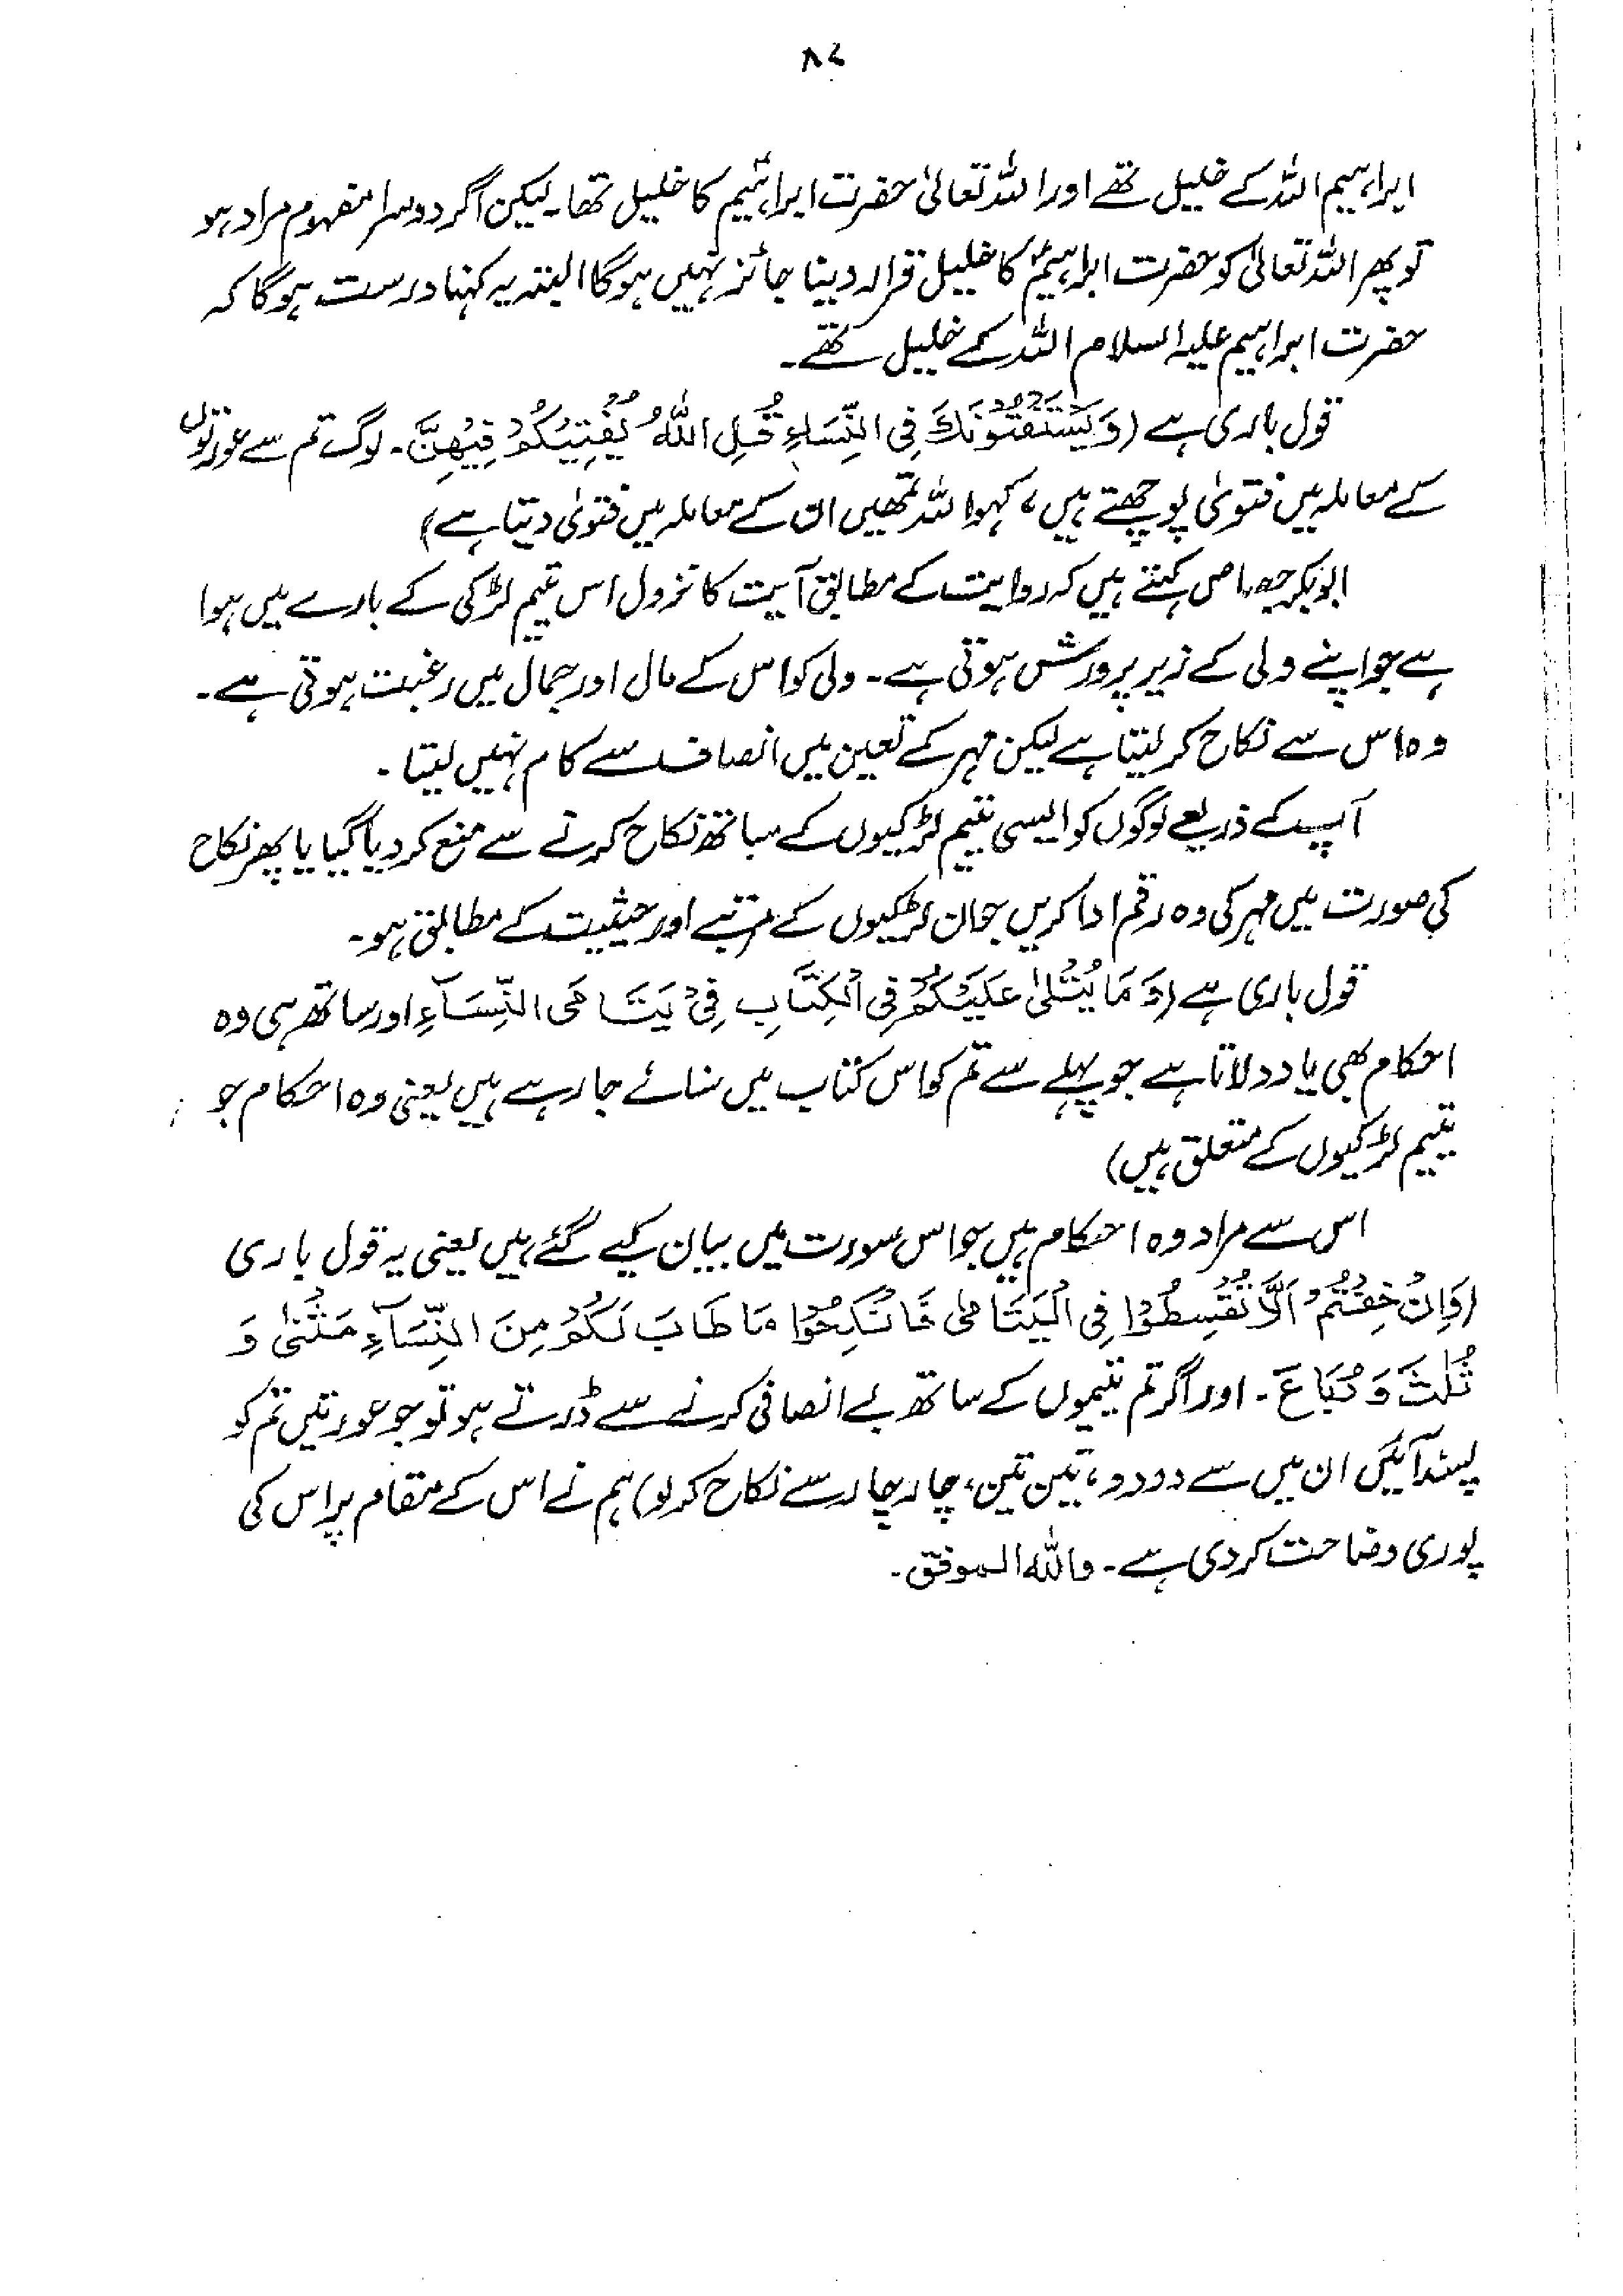 ۸۷
ابراہیم اللہ کے خلیل تھے اور اللہ تعالیٰ حضرت ابراہیم کا خلیل تھا۔ لیکن اگر دوسرا مفہوم مراد ہو
تو پھر اللہ تعالیٰ کو حضرت ابراہیمؑ کا خلیل قرار دینا جائز نہیں ہوگا البتہ یہ کہنا درست ہوگا کہ
حضرت ابراہیم علیہ السلام اللہ کے خلیل تھے۔
قول باری ہے (وَيَسْتَفْتُوْنَكَ فِى النِّسَاءِ قُلِ اللّٰهُ يُفْتِيْكُمْ فِيْهِنَّ۔ لوگ تم سے عورتوں
کے معاملہ میں فتویٰ پوچھتے ہیں، کہو اللہ تمھیں ان کے معاملہ میں فتویٰ دیتا ہے)
ابوبکر جصاص کہتے ہیں کہ روایت کے مطابق آیت کا نزول اس یتیم لڑکی کے بارے میں ہوا
ہے جو اپنے ولی کے زیر پرورش ہوتی ہے۔ ولی کو اس کے مال اور جمال میں رغبت ہوتی ہے۔
وہ اس سے نکاح کر لیتا ہے لیکن مہر کے تعین میں انصاف سے کام نہیں لیتا۔
آیت کے ذریعے لوگوں کو ایسی یتیم لڑکیوں کے ساتھ نکاح کرنے سے منع کر دیا گیا یا پھر نکاح
کی صورت میں مہر کی وہ رقم ادا کریں جو ان لڑکیوں کے مرتبے اور حیثیت کے مطابق ہو۔
قول باری ہے (وَمَا يُتْلىٰ عَلَيْكُمْ فِى الْكِتَابِ فِىْ يَتَامَى النِّسَآءِ اور ساتھ ہی وہ
احکام بھی یاد دلاتا ہے جو پہلے سے تم کو اس کتاب میں سنائے جا رہے ہیں یعنی وہ احکام جو
یتیم لڑکیوں کے متعلق ہیں)
اس سے مراد وہ احکام ہیں جو اس سورت میں بیان کیے گئے ہیں یعنی یہ قول باری
(وَاِنْ خِفْتُمْ اَلَّا تُقْسِطُوْا فِى الْيَتَامٰى فَانْكِحُوْا مَا طَابَ لَكُمْ مِنَ النِّسَآءِ مَثْنٰى وَ
ثُلٰثَ وَ رُبَاعَ۔ اور اگر تم یتیموں کے ساتھ بے انصافی کرنے سے ڈرتے ہو تو جو عورتیں تم کو
پسند آئیں ان میں سے دو دو، تین تین، چار چار سے نکاح کر لو) ہم نے اس کے مقام پر اس کی
پوری وضاحت کر دی ہے۔ واللہ الموفق۔